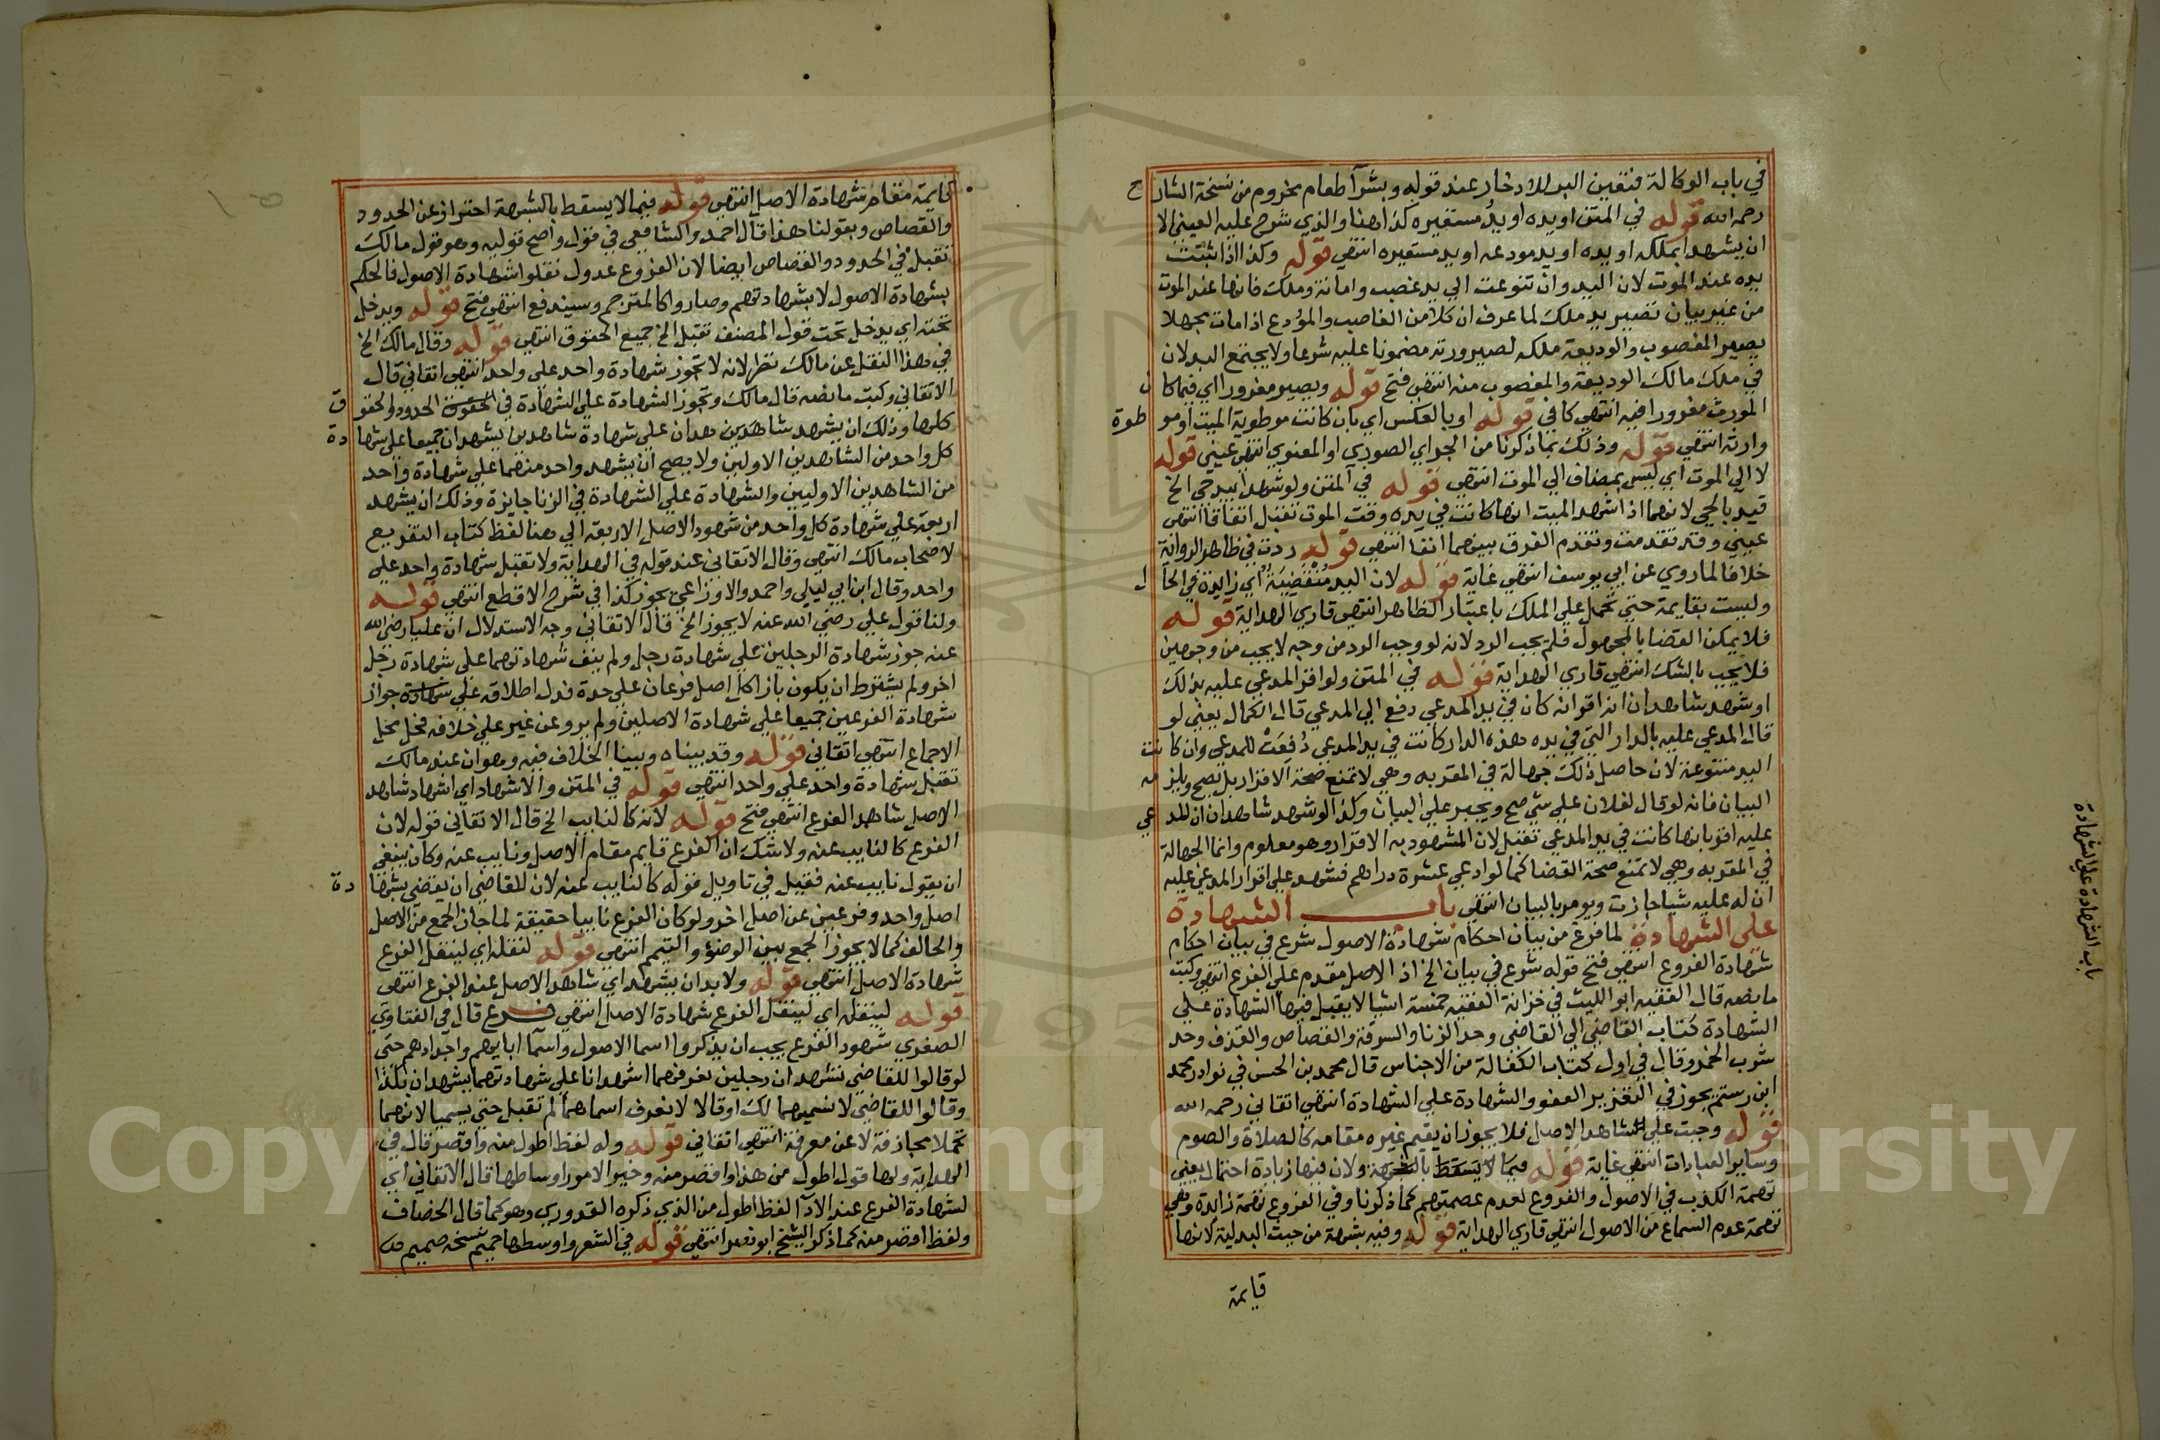 في باب الوكالة فتقين اليد للادخار عند قوله وبشرآ طعام مخروم من نسخة الشار
ح
رحمه الله قوله في المتن او يده او يد مستغيره كذا هنا والذي شرح عليه العيني الا
ان يشهدا بملكه او يده او يد مودعه او يد مستعيره انتهى قوله وكذا اذا ثبتت
يده عند الموت لان اليد وان تنوعت الي يد غصب وامانة وملك فانها عند الموت
من غير بيان تصير يد ملك لما عرف ان كلا من الغاصب والمودع اذا مات مجهلا
يصير المغصوب والوديعة ملكه لصيرورته مضمونا عليه شرعا ولا يجتمع البدلان
في ملك مالك الوديعة والمغصوب منه انتهى فتح قوله ويصير مغرورا اي فيما كا
ن
المورث مغرورا فيه انتهى كافي قوله او بالعكس اي بان كانت موطوية الميت او مو
طوة
وارثه انتهى قوله وذلك بما ذكرنا من الجر اي الصوري او المعنوي انتهى عيني قوله
لا الي الموت اي ليس بمضاف الي الموت انتهى قوله في المتن ولو شهدا بيد حي الخ
قيد بالحي لانهما اذا شهدا لميت انها كانت في يده وقت الموت تقبل اتفاقا انتهى
عيني وقد تقدمت وتقدم الفرق بينهما انفا انتهى قوله ردت في ظاهر الرواية
خلافا لما روي عن ابي يوسف انتهى غاية قوله لان اليد مُنْقَضِيَةٌ اي زايلة في الحا
ل
وليست بقايمة حتى تحمل علي الملك باعتبار الظاهر انتهى قاري الهداية قوله
فلا يمكن القضا بالمجهول فلم يجب الرد لانه لو وجب الرد من وجه لا يجب من وجهين
فلا يجب بالشك انتهى قاري الهداية قوله في المتن ولو اقر المدعي عليه بذلك
او شهد شاهدان انه اقر انه كان في يد المدعي دفع الي المدعي قال الكمال يعني لو
قال المدعي عليه بالدار التي في يده هذه الدار كانت في يد المدعي دُفِعَتْ للمدعي وان كا
نت
اليد متنوعة لان حاصل ذلك جهالة في المقر به وهي لا تمنع صحة الاقرار بل يصح ويلز
مه
البيان فانه لو قال لفلان علي شي صح ويجبر علي البيان وكذا لو شهد شاهدان ان المد
عي
عليه اقر بانها كانت في يد المدعي تقبل لان المشهود به الاقرار وهو معلوم وانما الجهالة
في المقر به وهي لا تمنع صحة القضا كما لو ادعي عشرة دراهم فشهد علي اقرار المدعي عليه
ان له عليه شيا جازت ويومر بالبيان انتهى باب الشهادة
علي الشهادة لما فرغ من بيان احكام شهادة الاصول شرع في بيان احكام
شهادة الفروع انتهى فتح قوله شرع في بيان الخ اذ الاصل مقدم علي الفرع انتهى وكتب
ما نصه قال الفقيه ابو الليث في خزانة الفقه خمسة اشيا لا يقبل فيها الشهادة علي
الشهادة كتاب القاضي الي القاضي وحد الزنا والسرقة والقصاص والقذف وحد
شرب الخمر وقال في اول كتاب الكفالة من الاجناس قال محمد بن الحسن في نوادر محمد
ابن رستم يجوز في التعزير العفو والشهادة علي الشهادة انتهى اتقاني رحمه الله
قوله وجبت علي الشاهد الاصل فلا يجوز ان يقيم غيره مقامه كالصلاة والصوم
وساير العبادات انتهى غاية قوله فيما لا يسقط بالشبهة ولان فيها زيادة احتمال يعني
تهمة الكذب في الاصول والفروع لعدم عصمتهم كما ذكرنا وفي الفروع تهمة زايدة وهي
تهمة عدم السماع من الاصول انتهى قاري الهداية قوله وفيه بشهة من حيث البدلية لانها
قايمة
باب الشهادة علي الشهادة
قايمة مقام شهادة الاصل انتهى قوله فيما لا يسقط بالشبهة احتراز عن الحدود
والقصاص وبقولنا هذا قال احمد والشافعي في قول واصح قوليه وهو قول مالك
تقبل في الحدود والقصاص ايضا لان الفروع عدول نقلوا شهادة الاصول فالحكم
بشهادة الاصول لا بشهادتهم وصاروا كالمترجم وسيندفع انتهى فتح قوله ويدخل
تحته اي يدخل تحت قول المصنف تقبل الخ جميع الحقوق انتهى قوله وقال مالك الخ
في هذا النقل عن مالك نظر لانه لا تجوز شهادة واحد علي واحد انتهى اتقاني قال
الاتقاني وكتب ما نصه قال مالك وتجوز الشهادة علي الشهادة في الحقوق الحدود والحقو
ق
كلها وذلك ان يشهد شاهدين هدان علي شهادة شاهدين يشهدان جميعا علي شها
دة
كل واحد من الشاهدين الاولين ولا يصح ان يشهد واحد منهما علي شهادة واحد
من الشاهدين الاوليين والشهادة علي الشهادة في الزنا جايزة وذلك ان يشهد
اربعة علي شهادة كل واحد من شهود الاصل الاربعة الي هنا لفظ كتاب التفريع
لاصحاب مالك انتهى وقال الاتقاني عند قوله في الهداية ولا تقبل شهادة واحد علي
واحد وقال ابن ابي ليلي واحمد والاوزاعي يجوز كذا في شرح الاقطع انتهى قوله
ولنا قول علي رضي الله عنه لا يجوز الخ قال الاتقاني وجه الاستدلال ان عليا رضي الله
عنه جوز شهادة الرجلين علي شهادة رجل ولم ينف شهادتهما علي شهادة رجل
اخر ولم يشترط ان يكون بازا كل اصل فرعان علي حدة فدل اطلاقه علي شهادة جواز
شهادة الفرعين جميعا علي شهادة الاصلين ولم يرو عن غير علي خلافه فحل محل
الاجماع انتهى اتقاني قوله وقد بيناه وبينا الخلاف فيه وهو ان عند مالك
تقبل شهادة واحد علي واحد انتهى قوله في المتن والاشهاد اي اشهاد شاهد
الاصل شاهد الفرع انتهى فتح قوله لانه كالنايب الخ قال الاتقاني قوله لان
الفرع كالنايب عنه ولا شك ان الفرع قايم مقام الاصل ونايب عنه وكان ينبغي
ان يقول نايب عنه فقيل في تاويل قوله كالنايب عنه لان للقاضي ان يقضي بشها
دة
اصل واحد وفرعين عن اصل اخر ولو كان الفرع نايبا حقيقة لما جاز الجمع من الاصل
والخالف كما لا يجوز الجمع بين الوضؤ والتيمم انتهى قوله لنقله اي لينقل الفرع
شهادة الاصل انتهى قوله ولا بد ان يشهد اي شاهد الاصل عند الفرع انتهى
قوله لينقله اي لينقل الفرع شهادة الاصل انتهى فرع قال في الفتاوي
الصغري شهود الفرع يجب ان يذكروا اسما الاصول واسمآ ابايهم واجدادهم حتى
لو قالوا للقاضي نشهد ان رجلين نعرفهما اشهدانا علي شهادتهما يشهدان بكذا
وقالوا للقاضي لا نسميهما لك او قالا لا نعرف اسماهما لم تقبل حتى يسميا لانهما
تحملا مجازفة لا عن معرفة انتهى اتقاني قوله وله لفظ اطول منه واقصر قال في
الهداية ولها قول اطول من هذا واقصر منه وخير الامور اوساطها قال الاتقاني اي
لشهادة الفرع عند الادآ لفظ اطول من الذي ذكره القدوري وهو كما قال الخصاف
ولفظ اقصر منه كما ذكر الشيخ ابو نصر انتهى قوله في الشعر واوسطها جميم نسخه صميم